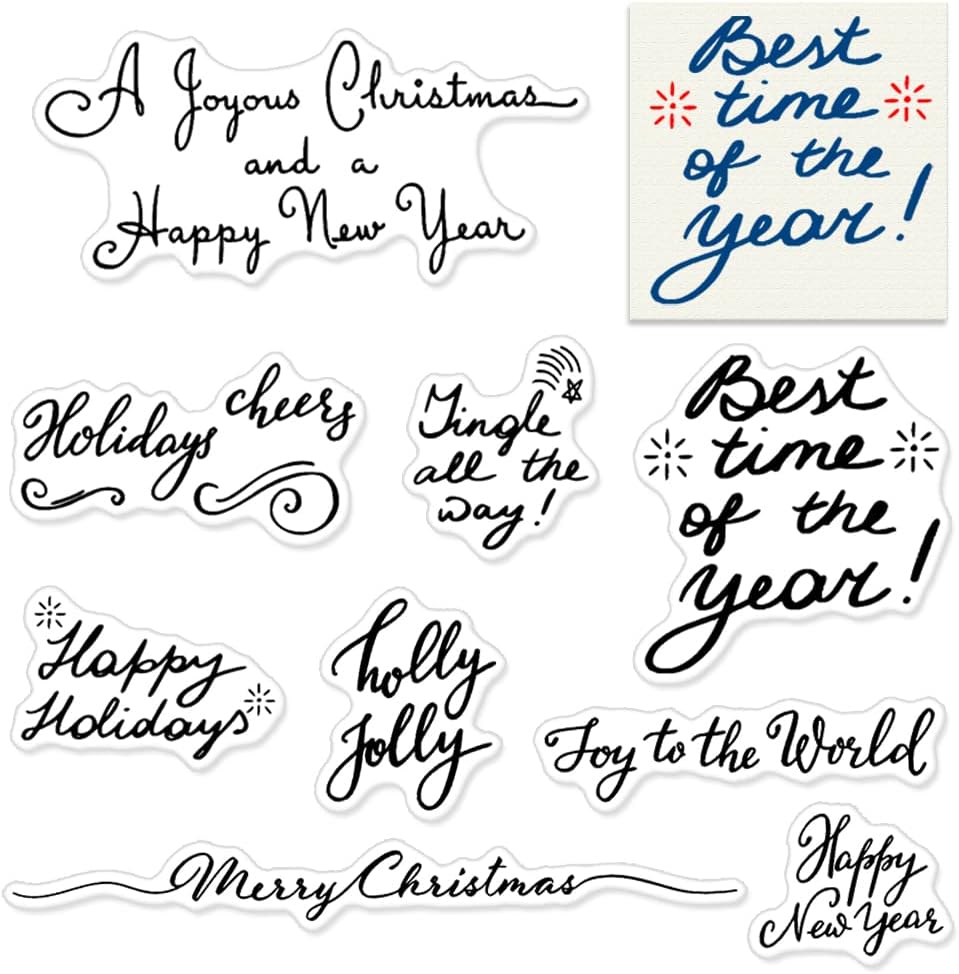 A Joyous Christmas
and a
Happy New Year
Best
time
of the
year!
Holidays cheers
Jingle
all the
way!
Best
time
of the
year!
Happy
Holidays
holly
Jolly
Joy to the World
Merry Christmas
Happy
New Year